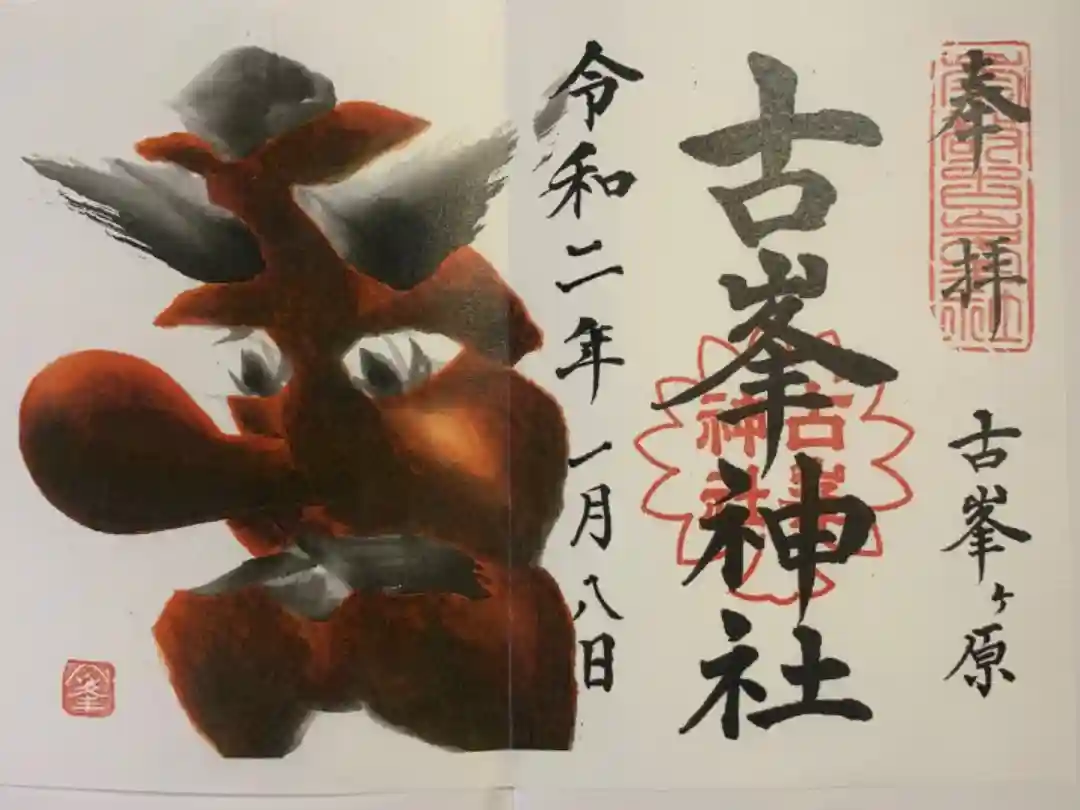 奉拝
古峯ヶ原
古峯神社
古峯
神社
令和二年一月八日
峯